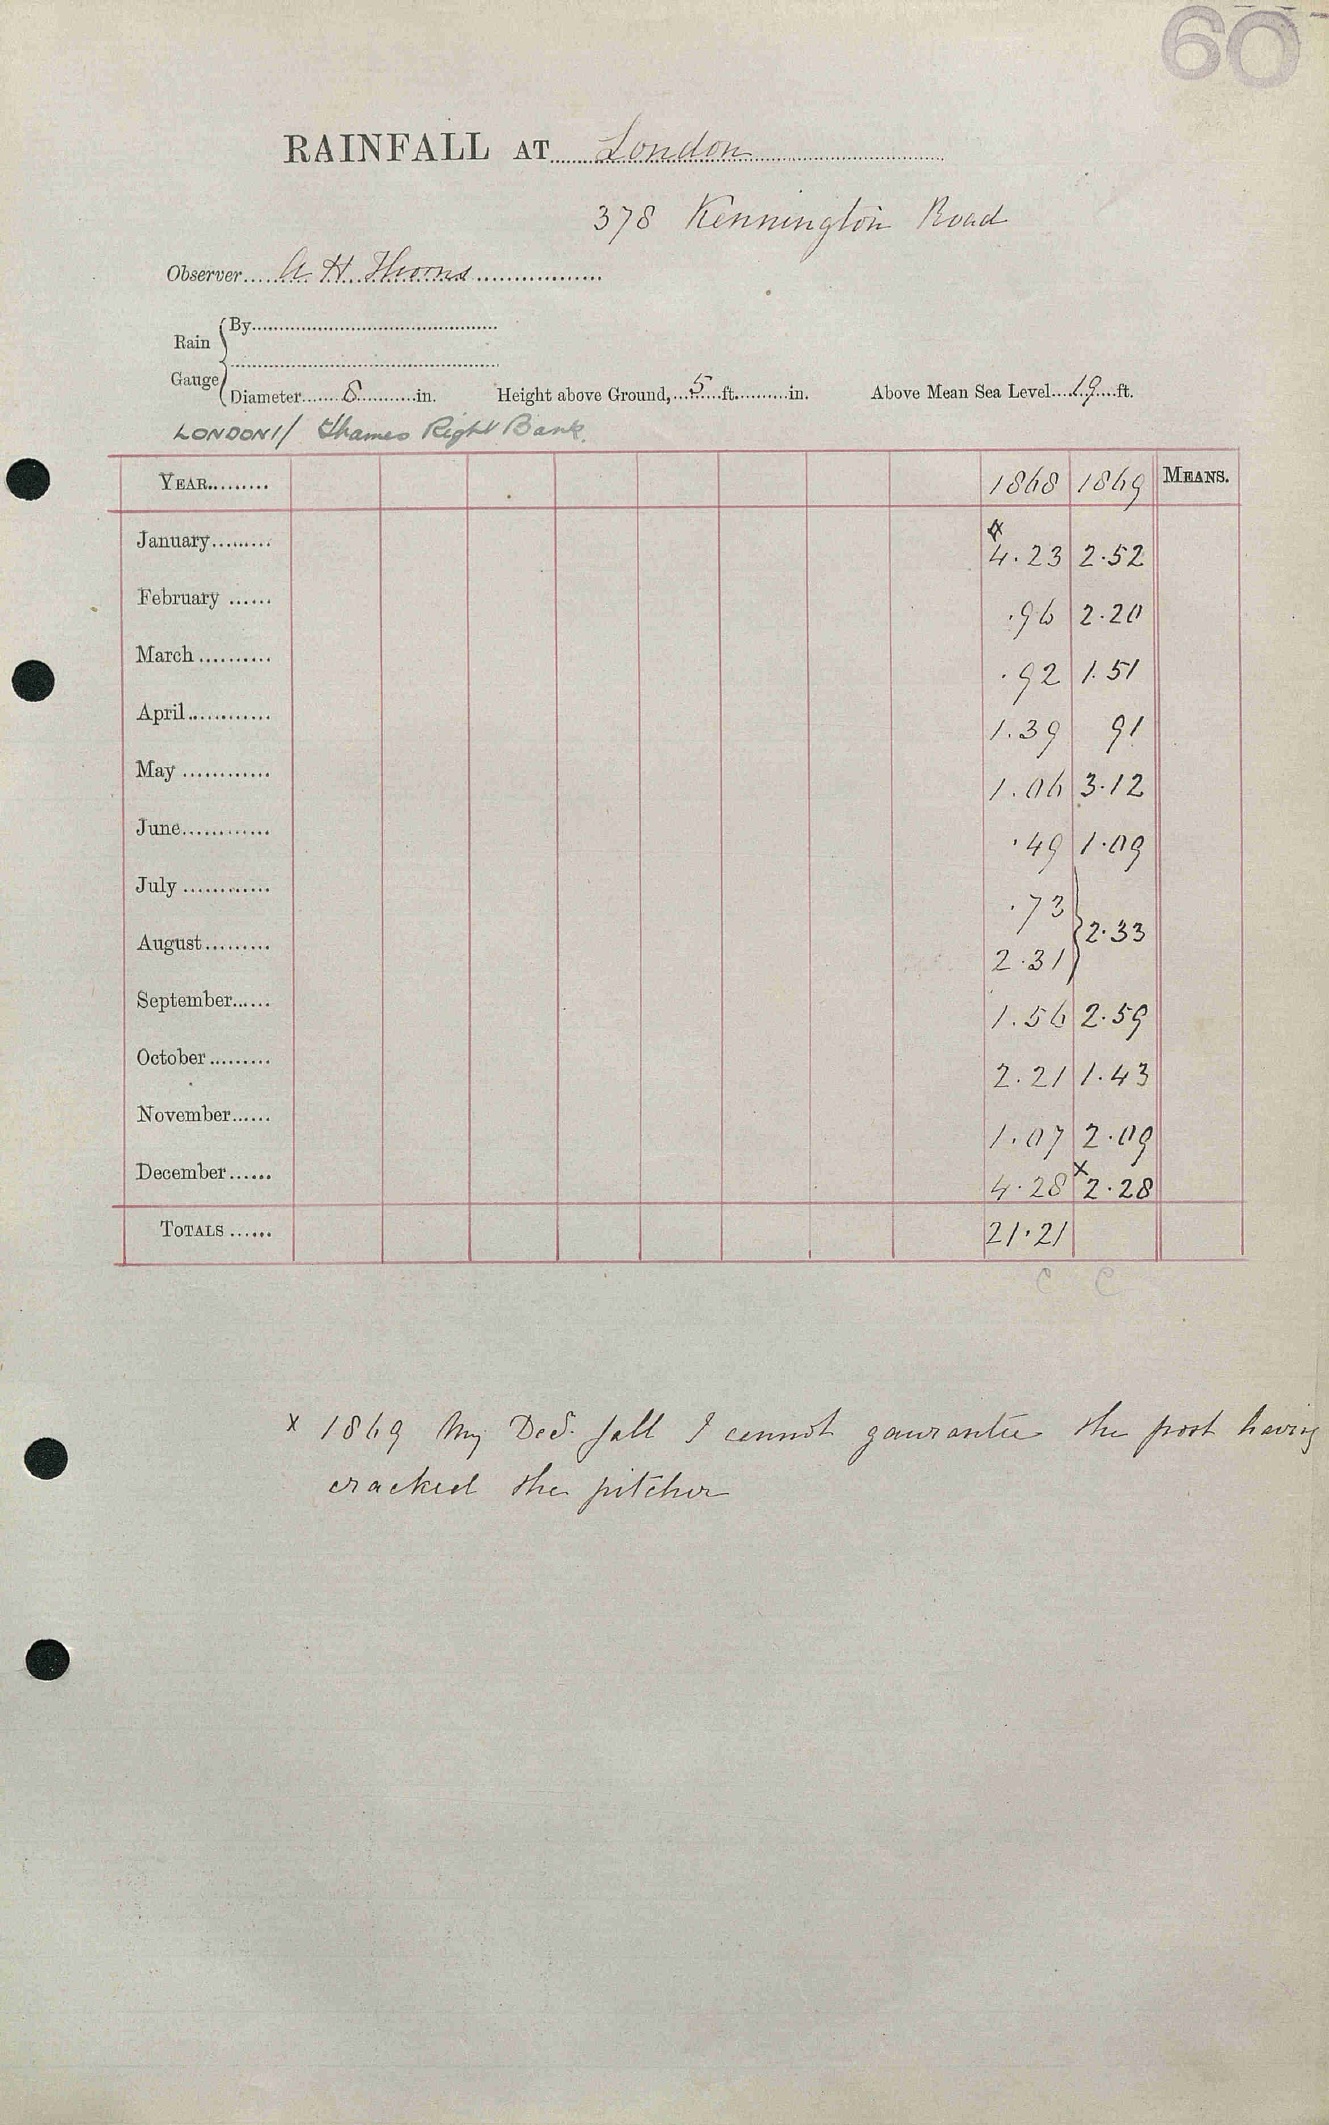 60
RAINFALL AT London
378 Kennington Road
Observer A H Thoms
Rain Gauge By
Diameter 8 in. Height above Ground, 5 ft. in. Above Mean Sea Level 19 ft.
LONDON 1/ Thames Right Bank.
YEAR 1868 1869 MEANS.
January x 4.23 2.52
February .96 2.20
March .92 1.51
April 1.39 91
May 1.06 3.12
June .49 1.09
July .73
August 2.31 } 2.33
September 1.56 2.59
October 2.21 1.43
November 1.07 2.09
December 4.28 x 2.28
TOTALS 21.21
C C
x 1869 My Decr. fall I cannot gaurantee the frost having
cracked the pitcher